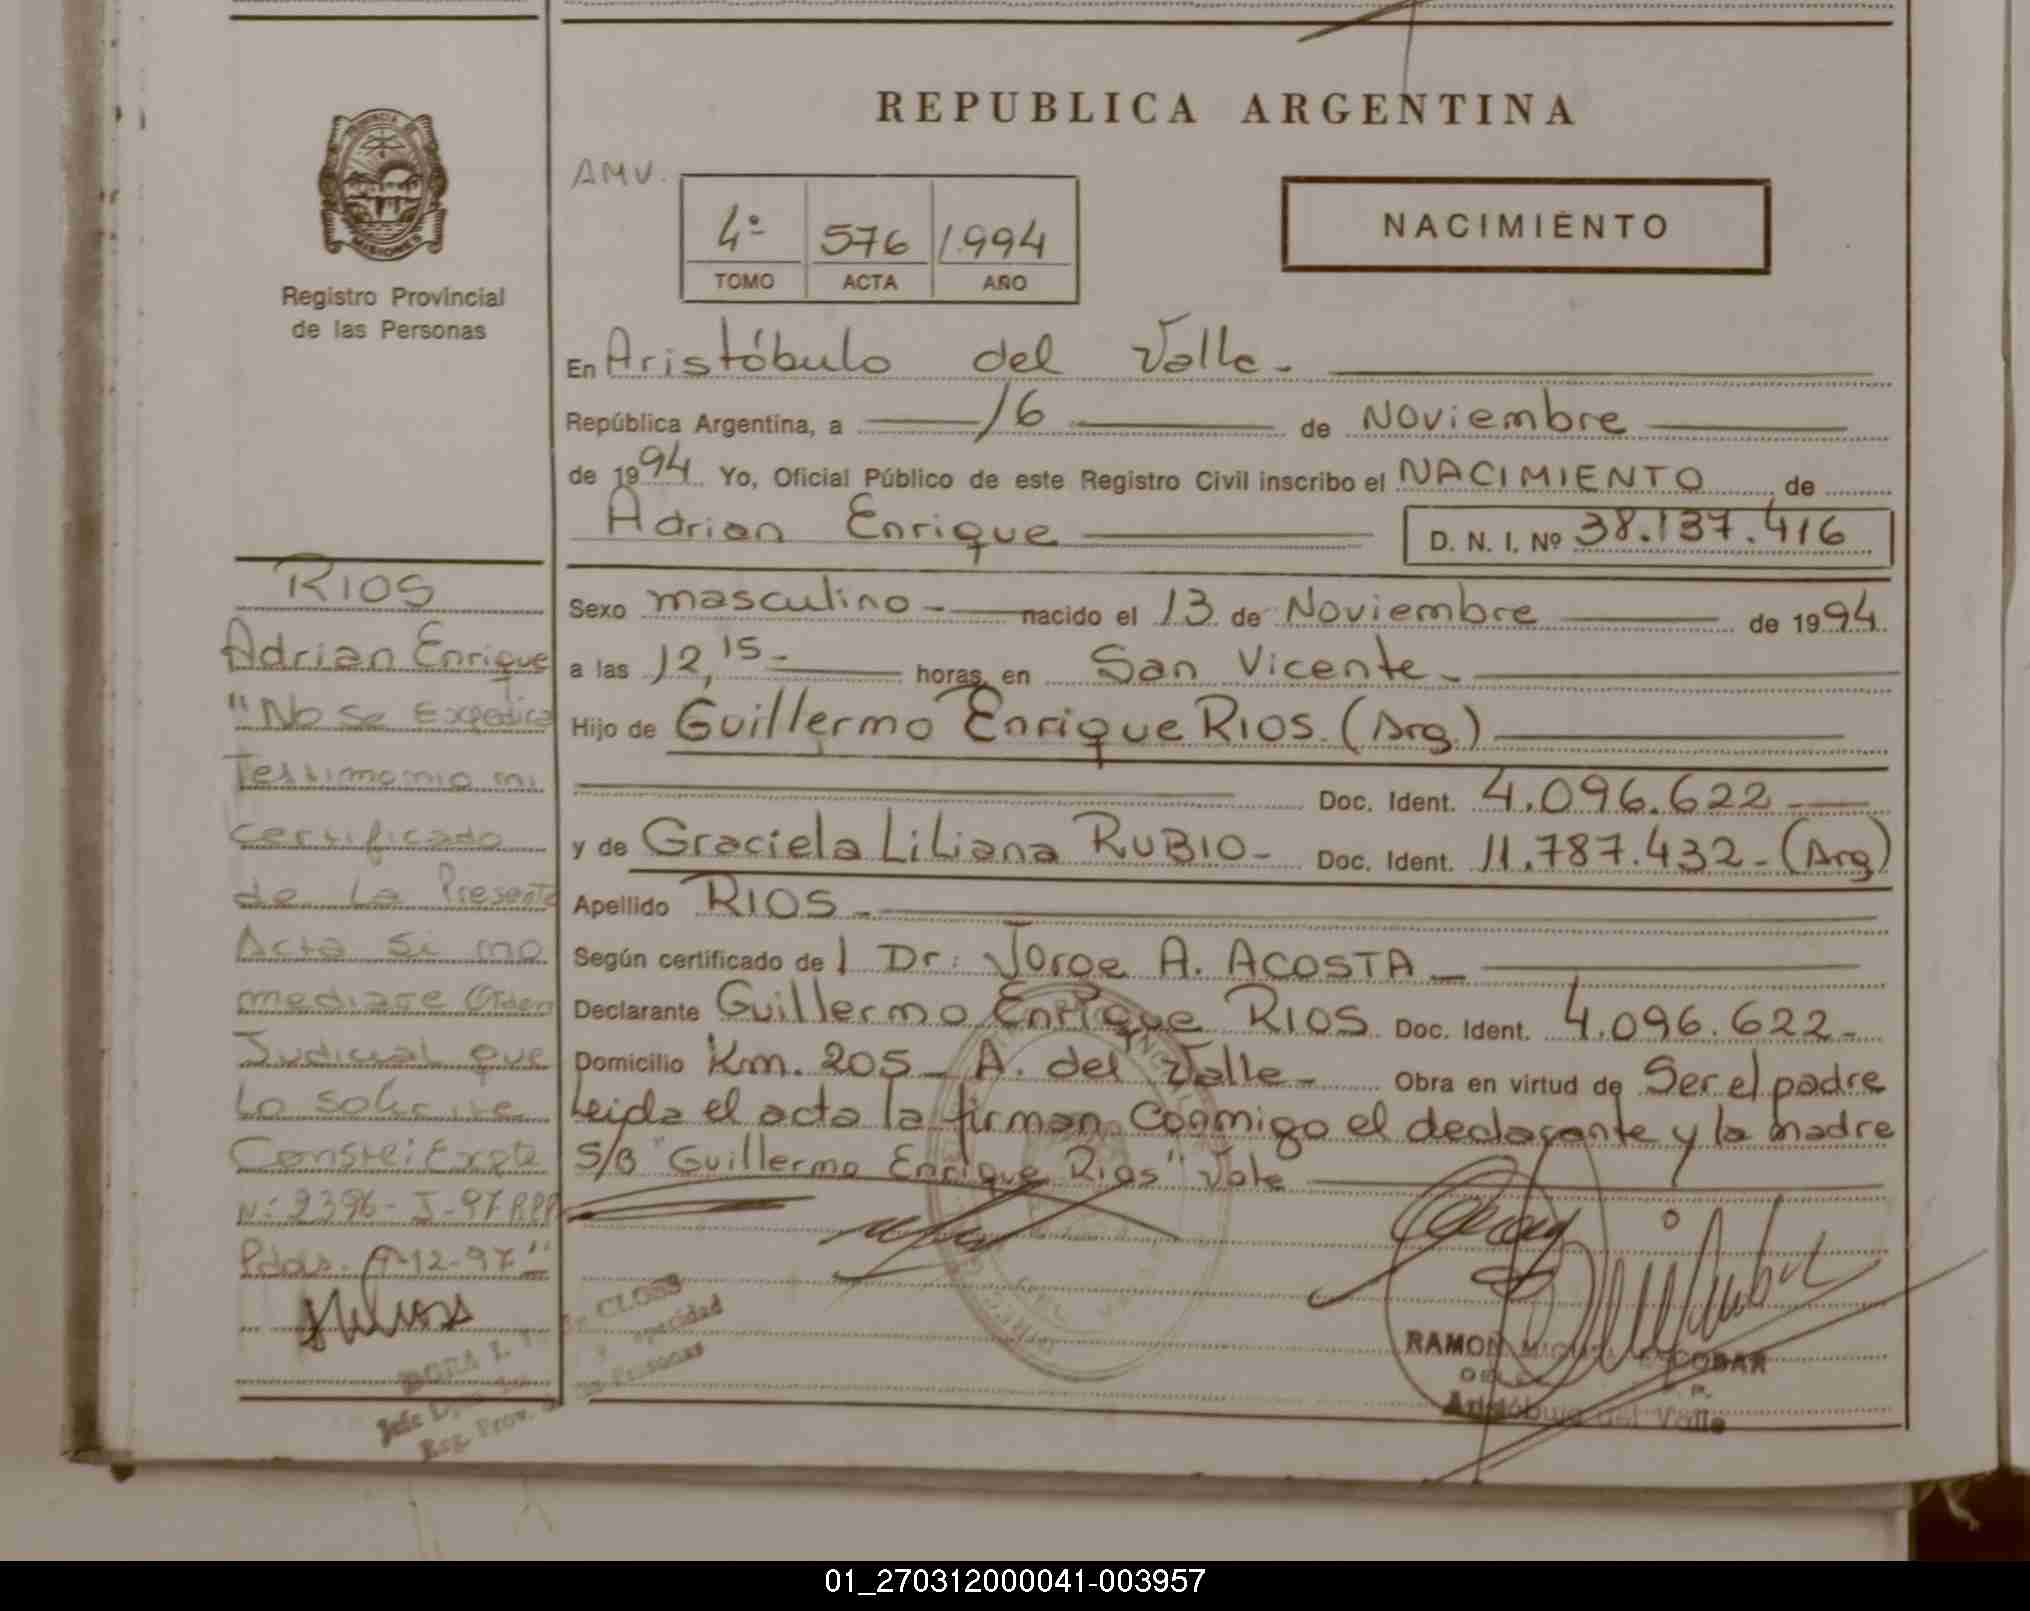 REPUBLICA ARGENTINA
PROVINCIA DE
MISIONES
Registro Provincial
de las Personas
AMV.
4º 576 1994
TOMO ACTA AÑO
NACIMIENTO
En Aristóbulo del Valle.
República Argentina, a 16 de Noviembre
de 1994 Yo, Oficial Público de este Registro Civil inscribo el NACIMIENTO de
Adrian Enrique D. N. I. Nº 38.137.416
Sexo masculino nacido el 13 de Noviembre de 1994
a las 12,15 horas, en San Vicente
Hijo de Guillermo Enrique RIOS. (Arg.)
Doc. Ident. 4.096.622
y de Graciela Liliana RUBIO Doc. Ident. 11.787.432 (Arg)
Apellido RIOS
Según certificado del Dr: Jorge A. ACOSTA
Declarante Guillermo Enrique RIOS Doc. Ident. 4.096.622
Domicilio Km. 205 A. del Valle Obra en virtud de Ser el padre
Leida el acta la firman conmigo el declarante y la madre
S/B "Guillermo Enrique Rios" Vale
RIOS
Adrian Enrique
"No Se Expedira
Testimonio ni
certificado
de La Presente
Acta Si no
mediare Orden
Judicial que
Lo solicite
Conste: Expte
Nº 2396-J-97 RPP
Pdas. 9-12-97"
CLOSS
RAMON MIGUEL ESCOBAR
Aristóbulo del Valle
01_270312000041-003957